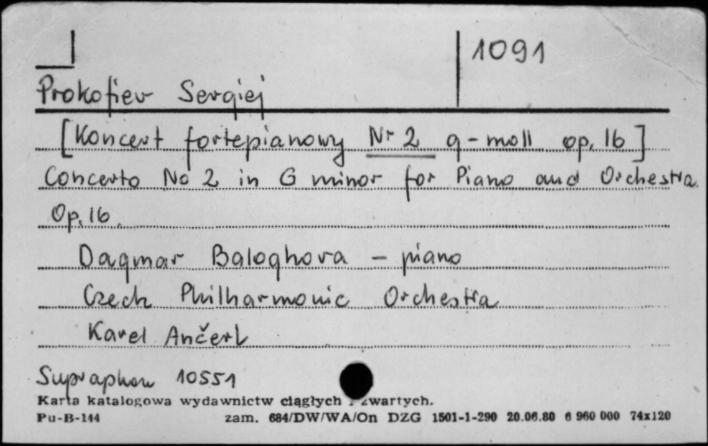 1091
Prokofiev Sergiej
[Koncert fortepianowy Nr 2 g-moll op. 16]
Concerto No 2 in G minor for Piano and Orchestra
Op. 16.
Dagmar Baloghova - piano
Czech Philharmonic Orchestra
Karel Ančerl
Supraphon 10551
Karta katalogowa wydawnictw ciągłych i zwartych.
Pu-B-144 zam. 684/DW/WA/On DZG 1501-1-290 20.06.80 6 960 000 74x120